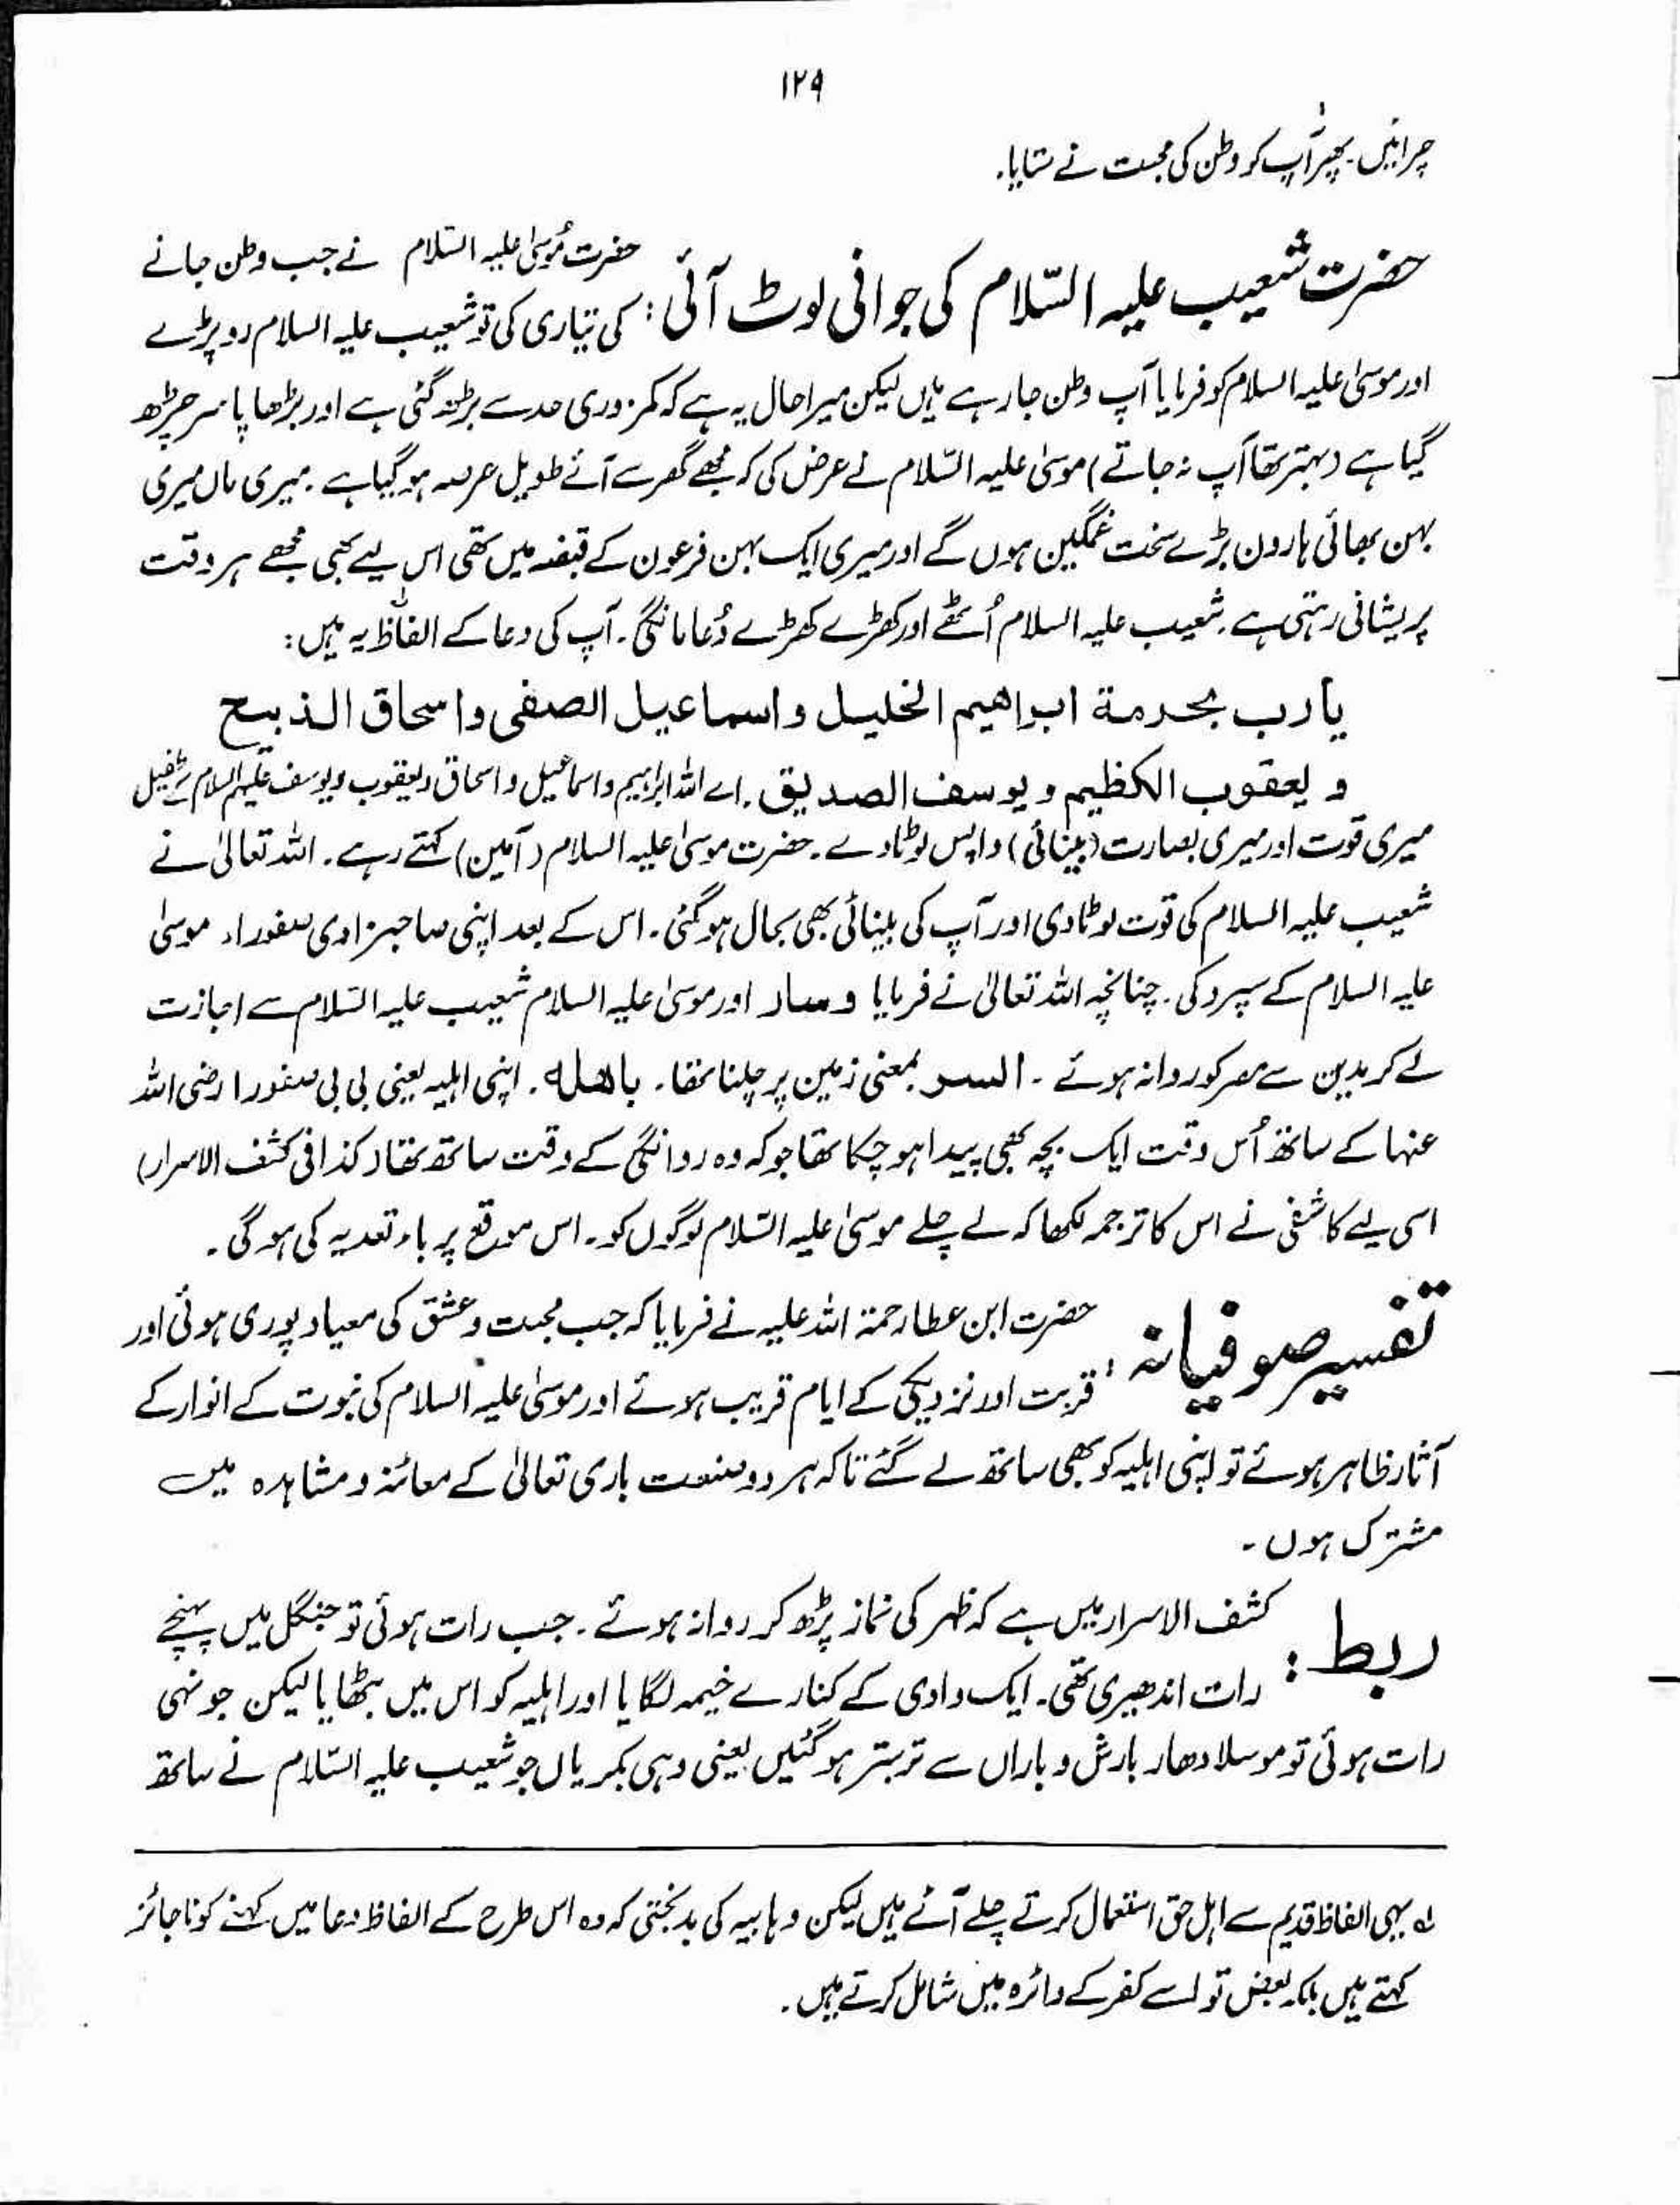 ۱۲۹
چرائیں۔ پھر آپ کو وطن کی محبت نے ستایا۔
حضرت شعیب علیہ السّلام کی جوانی لوٹ آئی : حضرت مُوسیٰ علیہ السّلام نے جب وطن جانے
کی تیاری کی تو شعیب علیہ السلام رو پڑے
اور موسیٰ علیہ السلام کو فرمایا آپ وطن جا رہے ہیں لیکن میرا حال یہ ہے کہ کمزوری حد سے بڑھ گئی ہے اور بڑھاپا سر چڑھ
گیا ہے (بہتر تھا آپ نہ جاتے) موسیٰ علیہ السّلام نے عرض کی کہ مجھے گھر سے آئے طویل عرصہ ہو گیا ہے۔ میری ماں میری
بہن بھائی ہارون بڑے سخت غمگین ہوں گے اور میری ایک بہن فرعون کے قبضہ میں تھی اس لیے بھی مجھے ہر وقت
پریشانی رہتی ہے۔ شعیب علیہ السلام اُٹھے اور کھڑے کھڑے دُعا مانگی۔ آپ کی دعا کے الفاظ یہ ہیں :
یارب بحرمة ابراھیم الخلیل و اسماعیل الصفی و اسحاق الذبیح
و یعقوب الکظیم و یوسف الصدیق۔ اے اللہ ابراہیم و اسماعیل و اسحاق و یعقوب و یوسف علیہم السلام کے طفیل
میری قوت اور میری بصارت (بینائی) واپس لوٹا دے۔ حضرت موسیٰ علیہ السلام (آمین) کہتے رہے۔ اللہ تعالیٰ نے
شعیب علیہ السلام کی قوت لوٹا دی اور آپ کی بینائی بھی بحال ہو گئی۔ اس کے بعد اپنی صاحبزادی صفوراء موسیٰ
علیہ السلام کے سپرد کی۔ چنانچہ اللہ تعالیٰ نے فرمایا وسار اور موسیٰ علیہ السلام شعیب علیہ السّلام سے اجازت
لے کر مدین سے مصر کو روانہ ہوئے۔ السیر بمعنی زمین پر چلنا تھا۔ باھلہ۔ اپنی اہلیہ یعنی بی بی صفورا رضی اللہ
عنہا کے ساتھ اُس وقت ایک بچہ بھی پیدا ہو چکا تھا جو کہ وہ روانگی کے وقت ساتھ تھا (کذا فی کشف الاسرار)
اسی لیے کاشفی نے اس کا ترجمہ لکھا کہ لے چلے موسیٰ علیہ السّلام لوگوں کو۔ اس موقع پر باء تعدیہ کی ہو گی۔
تفسیر صوفیانہ : حضرت ابن عطا رحمۃ اللہ علیہ نے فرمایا کہ جب محبت و عشق کی میعاد پوری ہوئی اور
قربت اور نزدیکی کے ایام قریب ہوئے اور موسیٰ علیہ السلام کی نبوت کے انوار کے
آثار ظاہر ہوئے تو اپنی اہلیہ کو بھی ساتھ لے گئے تاکہ ہر دو صنعت باری تعالیٰ کے معائنہ و مشاہدہ میں
مشترک ہوں۔
ربط : کشف الاسرار میں ہے کہ ظہر کی نماز پڑھ کر روانہ ہوئے۔ جب رات ہوئی تو جنگل میں پہنچے
رات اندھیری تھی۔ ایک وادی کے کنارے خیمہ لگایا اور اہلیہ کو اس میں بٹھایا لیکن جونہی
رات ہوئی تو موسلا دھار بارش و باراں سے تر بتر ہو گئیں یعنی وہی بکریاں جو شعیب علیہ السّلام نے ساتھ
لہ یہی الفاظ قدیم سے اہل حق استعمال کرتے چلے آئے ہیں لیکن وہابیہ کی بدبختی کہ وہ اس طرح کے الفاظ دعا میں کہنے کو ناجائز
کہتے ہیں بلکہ بعض تو اسے کفر کے دائرہ میں شامل کرتے ہیں۔